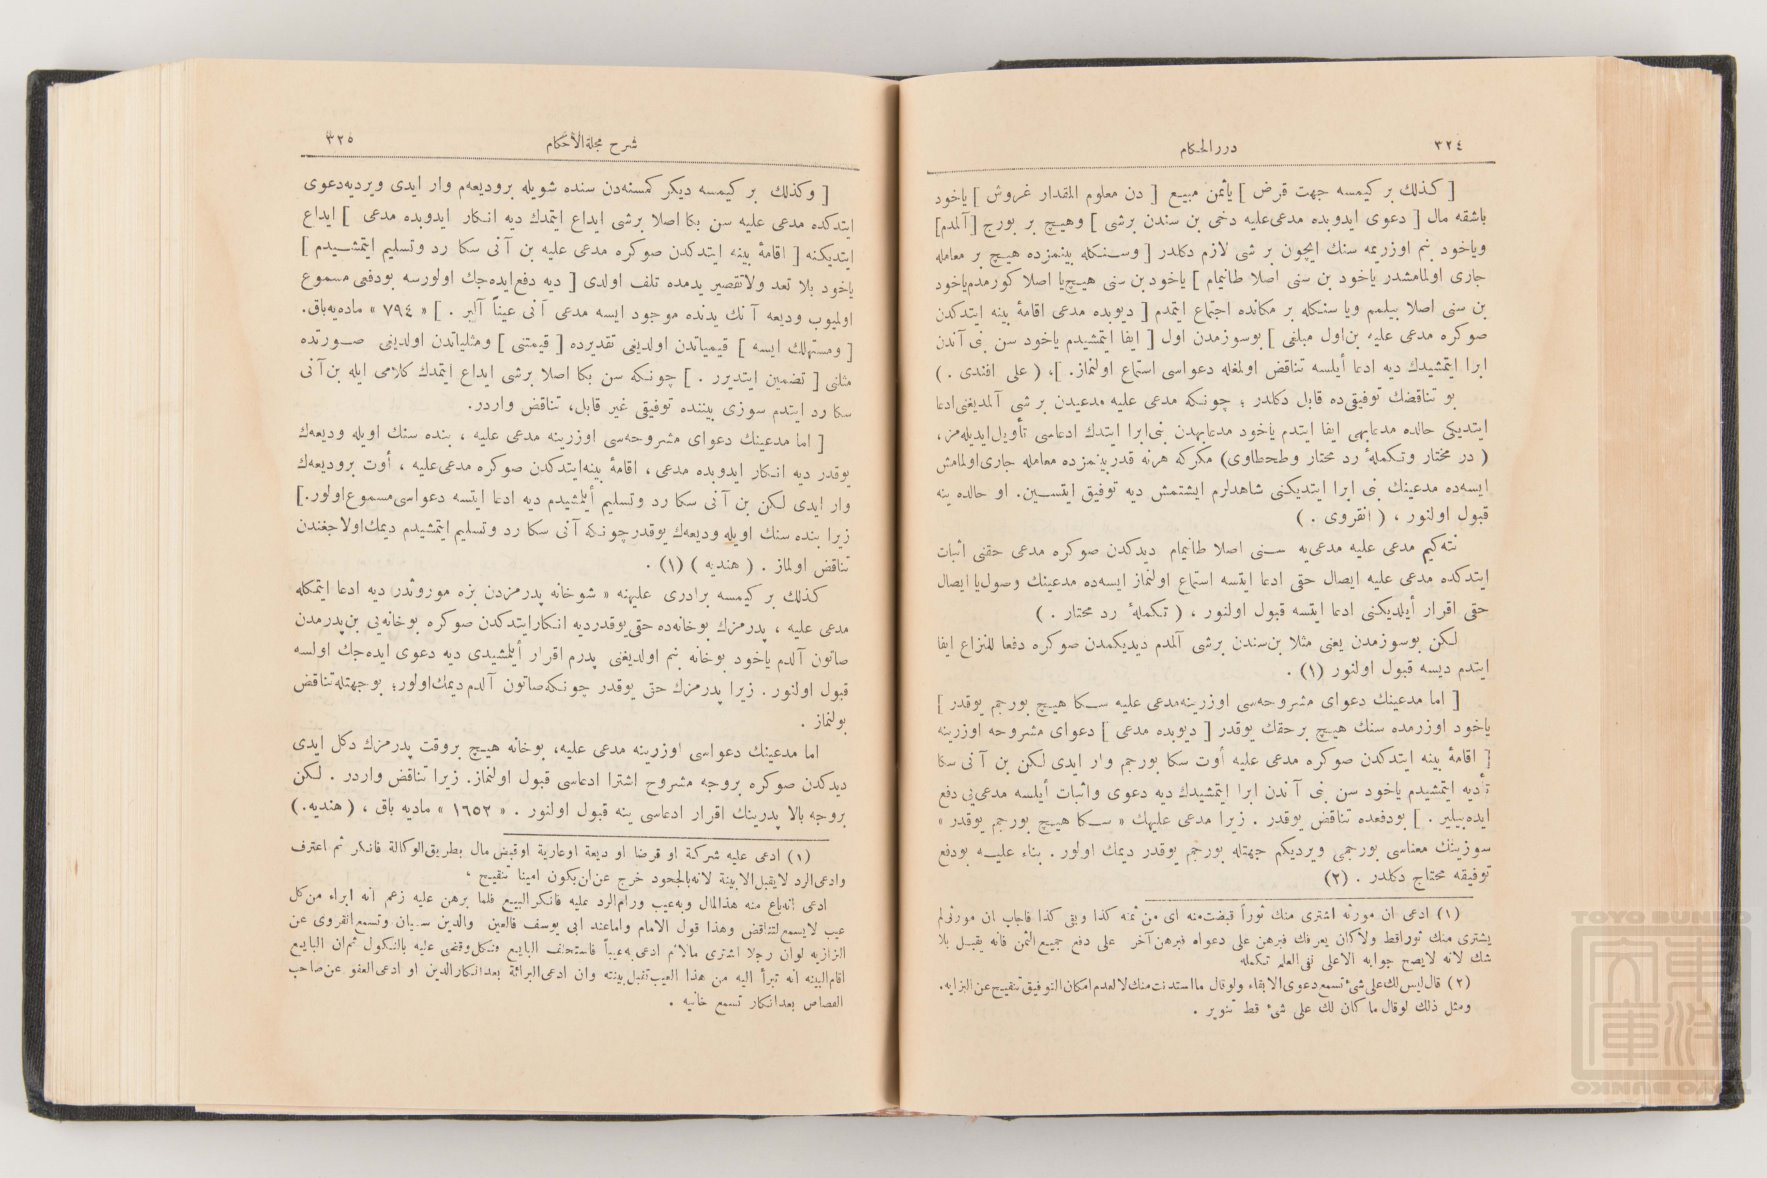 ٣٢٤
دررالحكام
[ كذلك بر كيمسه جهت قرض ] ياثمن مبيع [ دن معلوم المقدار غروش ] ياخود
باشقه مال [ دعوى ايدوبده مدعى‌عليه دخى بن سندن برشى ] وهيچ بر بورج [ آلمدم ]
وياخود بنم اوزريمه سنك ايچون بر شى لازم دكلدر [ وسنكله بينمزده هيچ بر معامله
جارى اولمامشدر ياخود بن سنى اصلا طانيمام ] ياخود بن سنى هيچ‌يا اصلا كورمدم ياخود
بن سنى اصلا بيلمم ويا سنكله بر مكانده اجتماع ايتمدم [ ديوبده مدعى اقامهٔ بينه ايتدكدن
صوكره مدعى عليه بن‌اول مبلغى ] بوسوزمدن اول [ ايفا ايتمشيدم ياخود سن بنى آندن
ابرا ايتمشيدك ديه ادعا أيلسه تناقض اولمغله دعواسى استماع اولنماز. ]، ( على افندى . )
بو تناقضك توفيقى‌ده قابل دكلدر ؛ چونكه مدعى عليه مدعيدن بر شى آلمديغنى ادعا
ايتديكى حالده مدعابهى ايفا ايتدم ياخود مدعابهدن بنى‌ابرا ايتدك ادعاسى تأويل‌ايديله‌مز،
( در مختار وتكملهٔ رد محتار وطحطاوى) مكركه هرنه قدربينمزده معامله جارى‌اولمامش
ايسه‌ده مدعينك بنى ابرا ايتديكنى شاهدلرم ايشتمش ديه توفيق ايتسين. او حالده ينه
قبول اولنور ، ( انقروى . )
نته‌كيم مدعى عليه مدعى‌يه سنى اصلا طانيمام ديدكدن صوكره مدعى حقنى اثبات
ايتدكده مدعى عليه ايصال حقى ادعا ايتسه استماع اولنماز ايسه‌ده مدعينك وصول‌يا ايصال
حقى اقرار أيلديكنى ادعا ايتسه قبول اولنور ، ( تكملهٔ رد محتار . )
لكن بوسوزمدن يعنى مثلا بن‌سندن برشى آلمدم ديديكمدن صوكره دفعا للنزاع ايفا
ايتدم ديسه قبول اولنور (١) .
[ اما مدعينك دعواى مشروحه‌سى اوزرينه مدعى عليه سكا هيچ بورجم يوقدر ]
ياخود اوزرمده سنك هيچ برحقك يوقدر [ ديوبده مدعى ] دعواى مشروحه اوزرينه
[ اقامهٔ بينه ايتدكدن صوكره مدعى عليه أوت سكا بورجم وار ايدى لكن بن آنى سكا
تأديه ايتمشيدم ياخود سن بنى آندن ابرا ايتمشيدك ديه دعوى واثبات أيلسه مدعى‌يى دفع
ايده‌بيلير . ] بودفعده تناقض يوقدر . زيرا مدعى عليهك « سكا هيچ بورجم يوقدر »
سوزينك معناسى بورجمى ويرديكم جهتله بورجم يوقدر ديمك اولور . بناء عليه بودفع
توفيقه محتاج دكلدر . (٢)
(١) ادعى ان مورثه اشترى منك ثوراً قبضت‌منه اى من ثمنه كذا وبقى كذا فاجاب ان مورثى لم
يشترى منك ثورا قط ولاكان يعرفك فبرهن على دعواه فبرهن آخر على دفع جميع الثمن فانه يقبل بلا
شك لانه لايصح جوابه الا على نفى العلم تكمله
(٢) قال ليس لك على شئ تسمع دعوى الايفاء ولوقال ما استدنت منك لا لعدم امكان التوفيق تنقيح عن البزازيه.
ومثل ذلك لوقال ما كان لك على شئ قط تنوير .
شرح مجلة الأحكام
٣٢٥
[ وكذلك بر كيمسه ديكر كمسنه‌دن سنده شويله بروديعه‌م وار ايدى ويرديه‌دعوى
ايتدكده مدعى عليه سن بكا اصلا برشى ايداع ايتمدك ديه انكار ايدوبده مدعى ] ايداع
ايتديكنه [ اقامهٔ بينه ايتدكدن صوكره مدعى عليه بن آنى سكا رد وتسليم ايتمشيدم ]
ياخود بلا تعد ولاتقصير يدمده تلف اولدى [ ديه دفع‌ايده‌جك اولورسه بودفعى مسموع
اولميوب وديعه آنك يدنده موجود ايسه مدعى آنى عيناً آلير . ] « ٧٩٤ » ماده‌يه‌باق.
[ ومستهلك ايسه ] قيمياتدن اولديغى تقديرده [ قيمتنى ] ومثلياتدن اولديغى صورتده
مثلنى [ تضمين ايتديرر . ] چونكه سن بكا اصلا برشى ايداع ايتمدك كلامى ايله بن‌آنى
سكا رد ايتدم سوزى بيننده توفيقى غير قابل، تناقض واردر.
[ اما مدعينك دعواى مشروحه‌سى اوزرينه مدعى عليه ، بنده سنك اويله وديعه‌ك
يوقدر ديه انكار ايدوبده مدعى ، اقامهٔ بينه‌ايتدكدن صوكره مدعى‌عليه ، أوت بروديعه‌ك
وار ايدى لكن بن آنى سكا رد وتسليم أيلمشيدم ديه ادعا ايتسه دعواسى مسموع‌اولور.]
زيرا بنده سنك اويله وديعه‌ك يوقدرچونكه آنى سكا رد وتسليم ايتمشيدم ديمك‌اولاجغندن
تناقض اولماز . ( هنديه ) (١) .
كذلك بر كيمسه برادرى عليهنه « شوخانه پدرمزدن بزه موروثدر» ديه ادعا ايتمكله
مدعى عليه ، پدرمزك بوخانه‌ده حقى‌يوقدرديه انكارايتدكدن صوكره بوخانه‌يى بن‌پدرمدن
صاتون آلدم ياخود بوخانه بنم اولديغنى پدرم اقرار أيلمشيدى ديه دعوى ايده‌جك اولسه
قبول اولنور . زيرا پدرمزك حق يوقدر چونكه‌صاتون آلدم ديمك‌اولور؛ بوجهتله‌تناقض
بولنماز .
اما مدعينك دعواسى اوزرينه مدعى عليه، بوخانه هيچ بروقت پدرمزك دكل ايدى
ديدكدن صوكره بروجه مشروح اشترا ادعاسى قبول اولنماز. زيرا تناقض واردر . لكن
بروجه بالا پدرينك اقرار ادعاسى ينه قبول اولنور . « ١٦٥٣ » ماديه باق ، ( هنديه. )
(١) ادعى عليه شركة او قرضا او ديعة اوعارية اوقبض مال بطريق‌الوكالة فانكر ثم اعترف
وادعى‌الرد لايقبل‌الابينة لانه بالجحود خرج عن‌ان‌يكون امينا تنقيح ،
ادعى انه‌باع منه هذالمال وبه‌عيب ورام‌الرد عليه فانكر البيع فلما برهن عليه زعم انه ابراء من‌كل
عيب لايسمع‌لتناقض وهذا قول الامام واماعند ابى يوسف فالعين والدين سيان وتسمع‌انقروى عن
البزازيه لوان رجلا اشترى مالا ثم ادعى به‌عيباً فاستحلف البايع ونكل وقضى عليه بالنكول ثم ان البايع
اقام‌البينه انه تبرأ اليه من هذا العيب تقبل بينته وان ادعى البرائة بعد انكار الدين او ادعى العفو عن صاحب
القصاص بعد انكار تسمع خانيه .
TOYO BUNKO